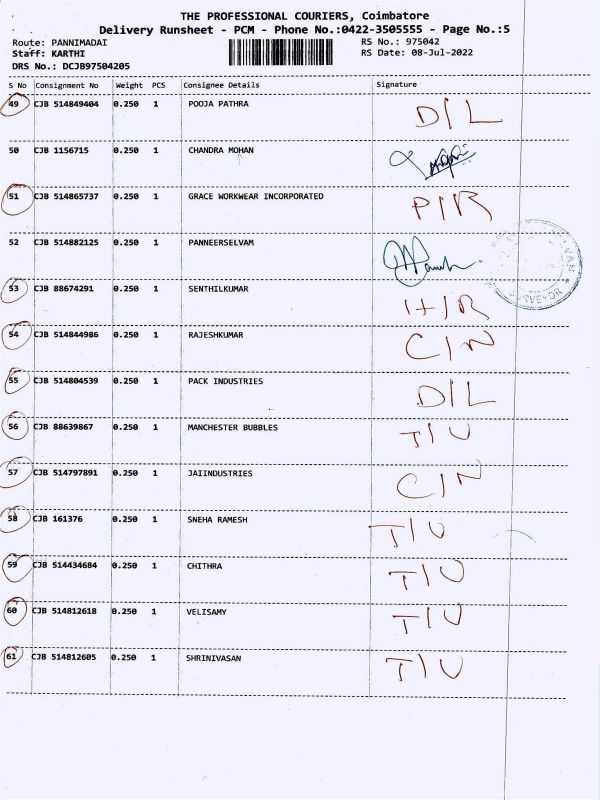 THE PROFESSIONAL COURIERS, Coimbatore
Delivery Runsheet - PCM - Phone No.:0422-3505555 - Page No.:5
Route: PANNIMADAI RS No.: 975042
Staff: KARTHI RS Date: 08-Jul-2022
DRS No.: DCJB97504205
S No Consignment No Weight PCS Consignee Details Signature
49 CJB 514849404 0.250 1 POOJA PATHRA D/L
50 CJB 1156715 0.250 1 CHANDRA MOHAN
51 CJB 514865737 0.250 1 GRACE WORKWEAR INCORPORATED P/R
52 CJB 514882125 0.250 1 PANNEERSELVAM
53 CJB 88674291 0.250 1 SENTHILKUMAR I+/R
54 CJB 514844986 0.250 1 RAJESHKUMAR C/N
55 CJB 514804539 0.250 1 PACK INDUSTRIES D/L
56 CJB 88639867 0.250 1 MANCHESTER BUBBLES T/U
57 CJB 514797891 0.250 1 JAIINDUSTRIES C/N
58 CJB 161376 0.250 1 SNEHA RAMESH T/U
59 CJB 514434684 0.250 1 CHITHRA T/U
60 CJB 514812618 0.250 1 VELISAMY T/U
61 CJB 514812605 0.250 1 SHRINIVASAN T/U